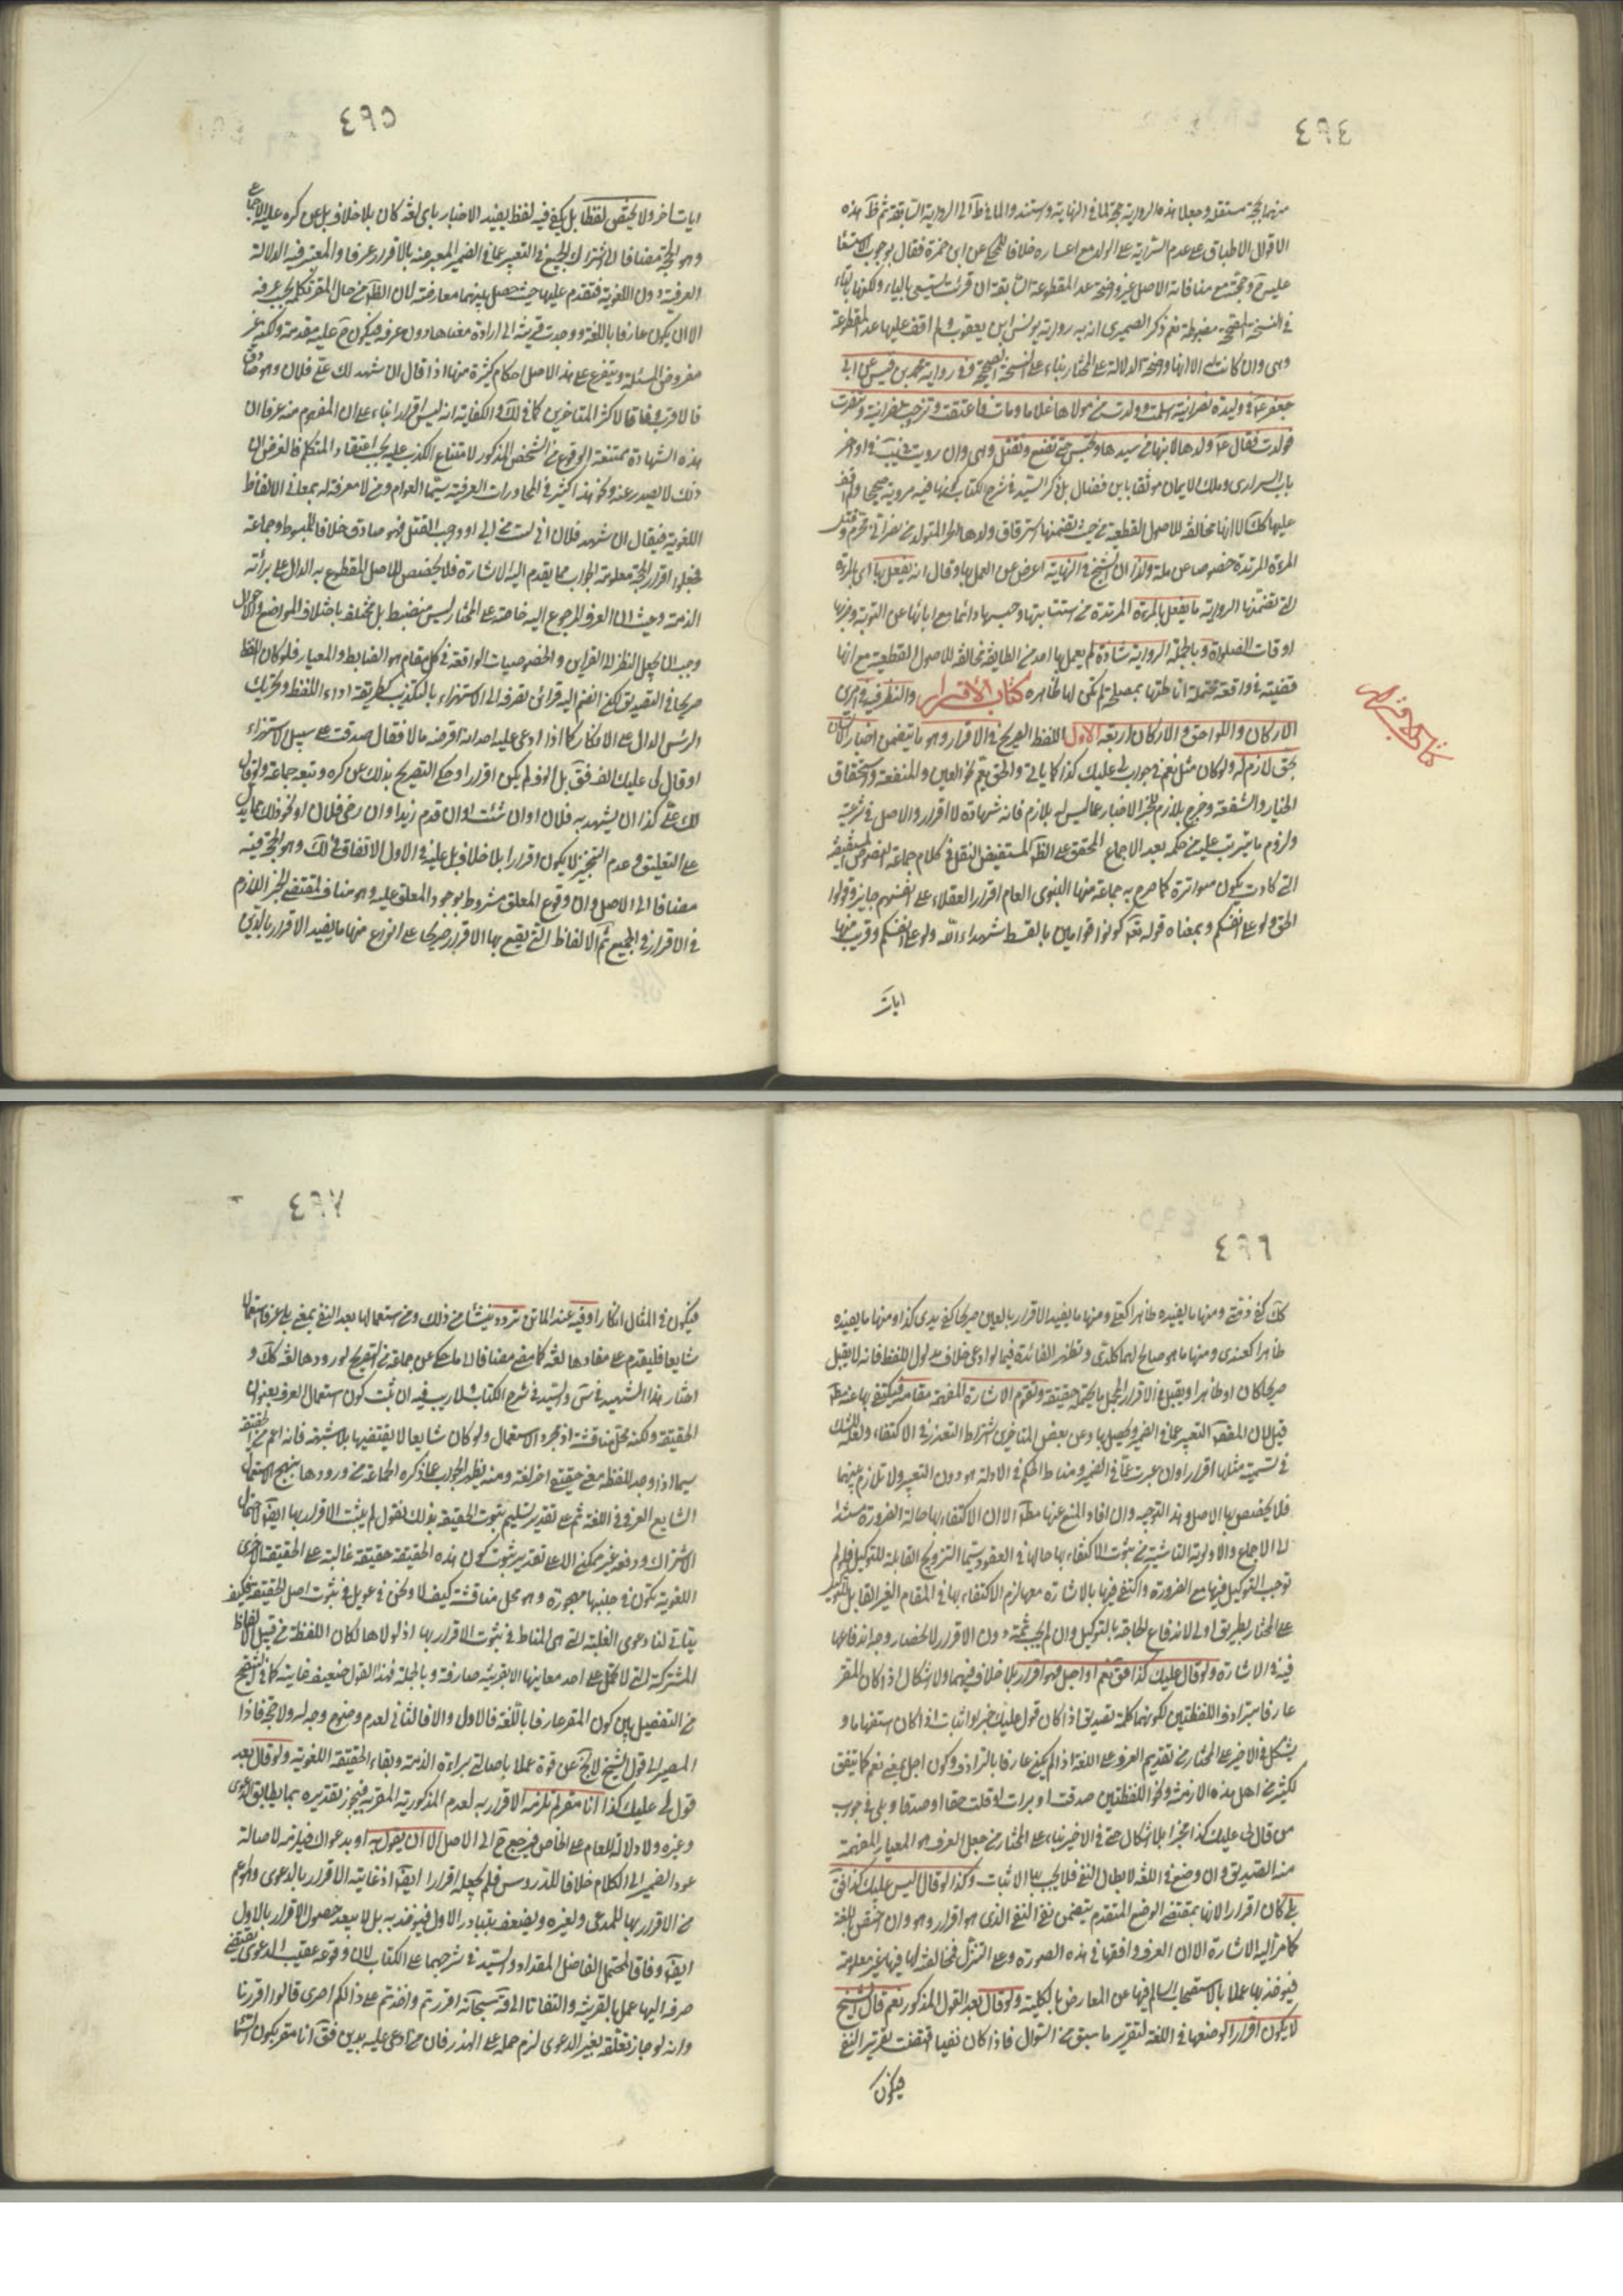 ٤٩٤
منهما بحجة مستقلة وجعلا هذه الرواية حجة لما في النهاية ومستند والما في ط الى الرواية السابقة ثم ظ هذه
الاقوال الاطباق على عدم السراية على الولد مع اعساره خلافا للمحكي عن ابن حمزة فقال بوجوب الاستسعاء
عليه ح وحجته مع منافاته الاصل غير واضحة عدا المقطوعة السابقة ان قرئت يستسعى بالياء ولكنها بالتاء
في النسخ المصححة مضبوطة نعم ذكر الصيمري ان به رواية يونس ابن يعقوب ولم اقف عليها عدا المقطوعة
وهي وان كانت الا انها واضحة الدلالة على المختار بناء على النسخة الصحيحة وفي رواية محمد بن قيس عن ابي
جعفر ع في وليدة نصرانية اسلمت وولدت من مولاها غلاما ومات فاعتقت وتزوجت نصرانيا وتنصرت
فولدت فقال ع ولدها لابنها من سيدها وتحبس حتى تضع وتقتل وهي وان رويت في يب في اواخر
باب السراري وملك الايمان موثقا بابن فضال بل ذكر السيد في شرح الكتاب كونها فيه مروية صحيحا ولم اقف
عليها كك الا انها مخالفة للاصول القطعية من حيث تضمنها استرقاق ولدها الحر المتولد من نصراني محرم وقتل
المرءة المرتدة خصوصا عن ملة ولذا ان الشيخ في النهاية اعرض عن العمل بها وقال انه يفعل بها اي بالمرءة
التي تضمنتها الرواية ما يفعل بالمرءة المرتدة من استتابتها وحبسها دائما مع ابائها عن التوبة وضربها
اوقات الصلوة وبالجملة الرواية شاذة لم يعمل بها احد من الطايفة مخالفة للاصول القطعية مع انها
قضية في واقعة محتملة اناطتها بمصلحة لم تكن لها ظاهره كتاب الاقرار والنظر فيه في امرين
الاركان واللواحق والاركان اربعة الاول اللفظ الصريح في الاقرار وهو ما يتضمن اخبار الانسان
بحق لازم له ولو كان مثل نعم في جواب لي عليك كذا كما ياتي والحق يعم نحو العين والمنفعة واستحقاق
الخيار والشفعة وخرج بلازم للمخبر الاخبار عما ليس له بلازم فانه شهادة لا اقرار والاصل في شرعيته
ولزوم ما يترتب عليه من حكمه بعد الاجماع المحقق على الظ المستفيض النقل في كلام جماعة النصوص المستفيضة
التي كادت يكون متواترة كما صرح به جماعة منها النبوي العام اقرار العقلاء على انفسهم جايز وقولوا
الحق ولو على انفسكم وبمعناه قوله تع كونوا قوامين بالقسط شهداء لله ولو على انفسكم وقريب منها
ايات
كتاب الاقرار
٤٩٥
ايات اخر ولا يختص لفظا بل يكفي فيه لفظ يفيد الاخبار باي لغة كان بلا خلاف بل عن كره عليه الاجماع
وهو الحجة مضافا الى اشتراك الجميع في التعبير عما في الضمير المعبر عنه بالاقرار عرفا والمعتبر فيه الدلالة
العرفية دون اللغوية فتقدم عليها حيث حصل بينهما معارضة لان الظ من حال المقر تكلمه بحسب عرفه
الا ان يكون عارفا باللغة ووجدت قرينة الى ارادة معناها دون عرفه فيكون ح عليه مقدمة ولكنه غير
مفروض المسئلة ويتفرع على هذا الاصل احكام كثيرة منها اذا قال ان شهد لك علي فلان وهو صادق
فالاقرب وفاقا لاكثر المتاخرين كما في لك والكفاية انه ليس اقرارا بناء على ان المفهوم منه عرفا ان
هذه الشهادة ممتنعة الوقوع من الشخص المذكور لامتناع الكذب عليه بحسب اعتقاد المتكلم فالغرض ان
ذلك لا يصدر عنه ونحو هذا كثير في المحاورات العرفية سيما العوام ومن لا معرفة له بمعاني الالفاظ
اللغوية فيقال ان شهد فلان اني لست من ابي او وجب القتل فهو صادق خلافا للمبسوط وجماعة
فجعلوا اقرارا لحجة معلومة الجواب مما يقدم اليه الاشارة فلا يخصص للاصل المقطوع به الدال على برائة
الذمة وحيث ان العرف المرجوع اليه خاصة على المختار ليس منضبط بل مختلف باختلاف المواضع والاحوال
وجب ان يجعل النظر الى القراين والخصوصيات الواقعة في كل مقام هو الضابط والمعيار فلو كان اللفظ
صريحا في التصديق لكن انضم اليه قرائن تصرفه الى الاستهزاء بالتكذيب كطريقة اداء اللفظ وتحريك
الرئس الدال على الانكار كما اذا ادعى عليه احد انه اقرضه مالا فقال صدقت على سبيل الاستهزاء
او قال لي عليك الف فق بل الوف لم يكن اقرارا وحكي التصريح بذلك عن كره وتبعه جماعة ولو قال
لك علي كذا ان يشهد به فلان او ان شئت او ان قدم زيد او ان رضي فلان او نحو ذلك مما يدل
على التعليق وعدم التنجيز لا يكون اقرارا بلا خلاف بل عليه في الاول الاتفاق في لك وهو الحجة فيه
مضافا الى الاصل وان وقوع المعلق مشروط بوجود المعلق عليه وهو مناف لمقتضى الخبر اللازم
في الاقرار في الجميع ثم الالفاظ التي يقع بها الاقرار صريحا على انواع منها ما يفيد الاقرار بالدين
٤٩٦
كك كفي ذمتي ومنها ما يفيده ظاهرا كعلي ومنها ما يفيد الاقرار بالعين صريحا كفي يدي كذا ومنها ما يفيده
ظاهرا كعندي ومنها ما هو صالح لهما كلدي وتظهر الفائدة فيما لو ادعى خلاف مدلول اللفظ فانه لا يقبل
صريحا كان او ظاهرا ويقبل في الاقرار المجمل ما يحتمله حقيقة وتقوم الاشارة المفهمة مقامه فيكتفى بها عنه مط
قيل لان المقصود التعبير عما في الضمير ويحصل بها وعن بعض المتاخرين اشتراط التعذر في الاكتفاء ولعله للشك
في تسمية مثلها اقرارا وان عبرت عما في الضمير ومناط الحكم في الادلة هو دون التعبير ولا تلازم بينهما
فلا يخصص بها الاصل وهذا التوجيه وان افاد المنع عنها مط الا ان الاكتفاء بها حالة الضرورة مستندا
الى الاجماع والاولوية الناشية من ثبوت الاكتفاء بها حالها في العقود سيما التزويج القابلة للتوكيل فلو لم
توجب التوكيل فيها مع الضرورة واكتفي فيها بالاشارة معها لزم الاكتفاء بها في المقام الغير القابل للتوكيل
على المختار بطريق اولى لاندفاع الحاجة بالتوكيل وان لم يجب ثمة دون الاقرار لانحصار وجه اندفاعها
فيه في الاشارة ولو قال عليك كذا فق نعم او اجل فهو اقرار بلا خلاف فيهما ولا اشكال اذا كان المقر
عارفا بترادف اللفظتين لكونهما كلمة تصديق اذا كان قول عليك خبرا واثبات اذا كان استفهاما و
يشكل في الاخير على المختار من تقديم العرف على اللغة اذا لم يكن عارفا بالترادف وكون اجل بمعنى نعم كما يتفق
لكثير من اهل هذه الازمنة ونحو اللفظتين صدقت او بررت او قلت حقا او صدقا وبلى في جواب
من قال لي عليك كذا مخبرا بلا اشكال حتى في الاخير بناء على المختار من جعل العرف هو المعيار المفهمة
منه التصديق وان وضع في اللغة لابطال النفي فلا يجب بها الاثبات وكذا لو قال اليس عليك كذا فق
بلى كان اقرارا لانها بمقتضى الوضع المتقدم يتضمن نفي النفي الذي هو اقرار وهو وان اختص باللغة
كما مر اليه الاشارة الا ان العرف وافقها في هذه الصورة وعلى التنزل فمخالفته لها فيها غير معلومة
فيؤخذ بها عملا بالاستصحاب السالم فيها عن المعارض بالكلية ولو قال بعد القول المذكور نعم قال الشيخ
لا يكون اقرارا لوضعها في اللغة لتقرير ما سبق من السؤال فاذا كان نفيا اقتضت تقرير النفي
فيكون
٤٩٧
فيكون في المثال انكارا وفيه عند الماتن تردد ينشأ من ذلك ومن استعمالها بعد النفي بمعنى بلى عرفا استعمالا
شايعا فليقدم على مفادها لغة كما مضى مضافا الى ما حكي عن جماعة من التصريح لورودها لغة كك و
اختار هذا الشهيد في س والسيد في شرح الكتاب ولا ريب فيه ان ثبت كون استعمال العرف بعنوان
الحقيقة ولكنه محل مناقشة اذ مجرد الاستعمال ولو كان شايعا لا يقتضيها بلا شبهة فانه اعم من الحقيقة
سيما اذا وجد للفظه معنى حقيقي اخر لغة ومنه يظهر الجواب عما ذكره الجماعة من ورودها بنهج الاستعمال
الشايع العرفي في اللغة ثم على تقدير تسليم ثبوت الحقيقة بذلك نقول لم يثبت الاقرار بها ايض لاحتمال
الاشتراك ودفعه غير ممكن الا على تقدير ثبوت كون هذه الحقيقة حقيقة غالبة على الحقيقة الاخرى
اللغوية تكون في جنبها مهجورة وهو محل مناقشة كيف لا ونحن في عويل في ثبوت اصل الحقيقة فكيف
يتاتى لنا دعوى الغلبة التي هي المناط في ثبوت الاقرار بها اذ لولاها لكان اللفظة من قبيل الالفاظ
المشتركة التي لا تحمل على احد معانيها الا بقرينة صارفة وبالجملة فهذا القول ضعيف غايته كما في التنقيح
من التفصيل بين كون المقر عارفا باللغة فالاول والا فالثاني لعدم وضوح وجه له ولا حجة فاذا
المصير الى قول الشيخ لا يخ عن قوة عملا باصالتي براءة الذمة وبقاء الحقيقة اللغوية ولو قال بعد
قول لي عليك كذا انا مقر لم يلزمه الاقرار به لعدم المذكورية المقر به فيجوز تقديره بما يطابق الدعوى
وغيره ولا دلالة للعام على الخاص فيرجع ح الى الاصل الا ان يقول به او بدعواك فيلزمه لاصالة
عود الضمير الى الكلام خلافا للدروس فلم يجعله اقرارا ايض اذ غايته الاقرار بالدعوى وهو اعم
من الاقرار بها للمدعي ولغيره ويضعف بتبادر الاول فيؤخذ به بل لا يبعد حصول الاقرار بالاول
ايض وفاقا لمحتمل الفاضل المقداد والسيد في شرحيهما على الكتاب لان وقوعه عقيب الدعوى يقتضي
صرفه اليها عملا بالقرينة والتفاتا الى قوله سبحانه اقررتم واخذتم على ذلكم اصري قالوا اقررنا
وانه لو جاز تعلقه بغير الدعوى لزم حمله على الهذر فان من ادعى عليه بدين فق انا مقر يكون